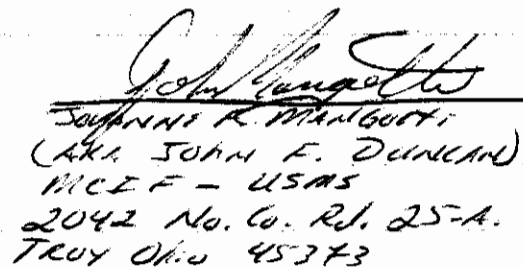 John Mangotti
JOHNNY R. MANGOTTI
(AKA JOHN F. DUNCAN)
MCIF - USMS
2042 No. Co. Rd. 25-A.
TROY Ohio 45373